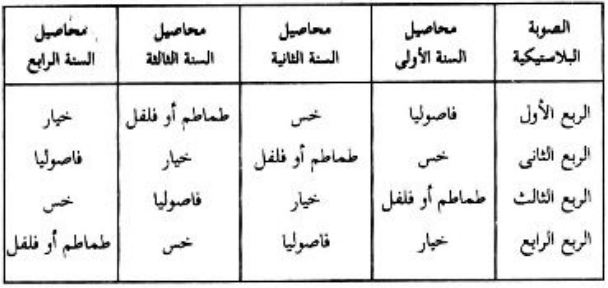 الصوبة البلاستيكية | محاصيل السنة الأولى | محاصيل السنة الثانية | محاصيل السنة الثالثة | محاصيل السنة الرابع
الربع الأول | فاصوليا | خس | طماطم أو فلفل | خيار
الربع الثانى | خس | طماطم أو فلفل | خيار | فاصوليا
الربع الثالث | طماطم أو فلفل | خيار | فاصوليا | خس
الربع الرابع | خيار | فاصوليا | خس | طماطم أو فلفل